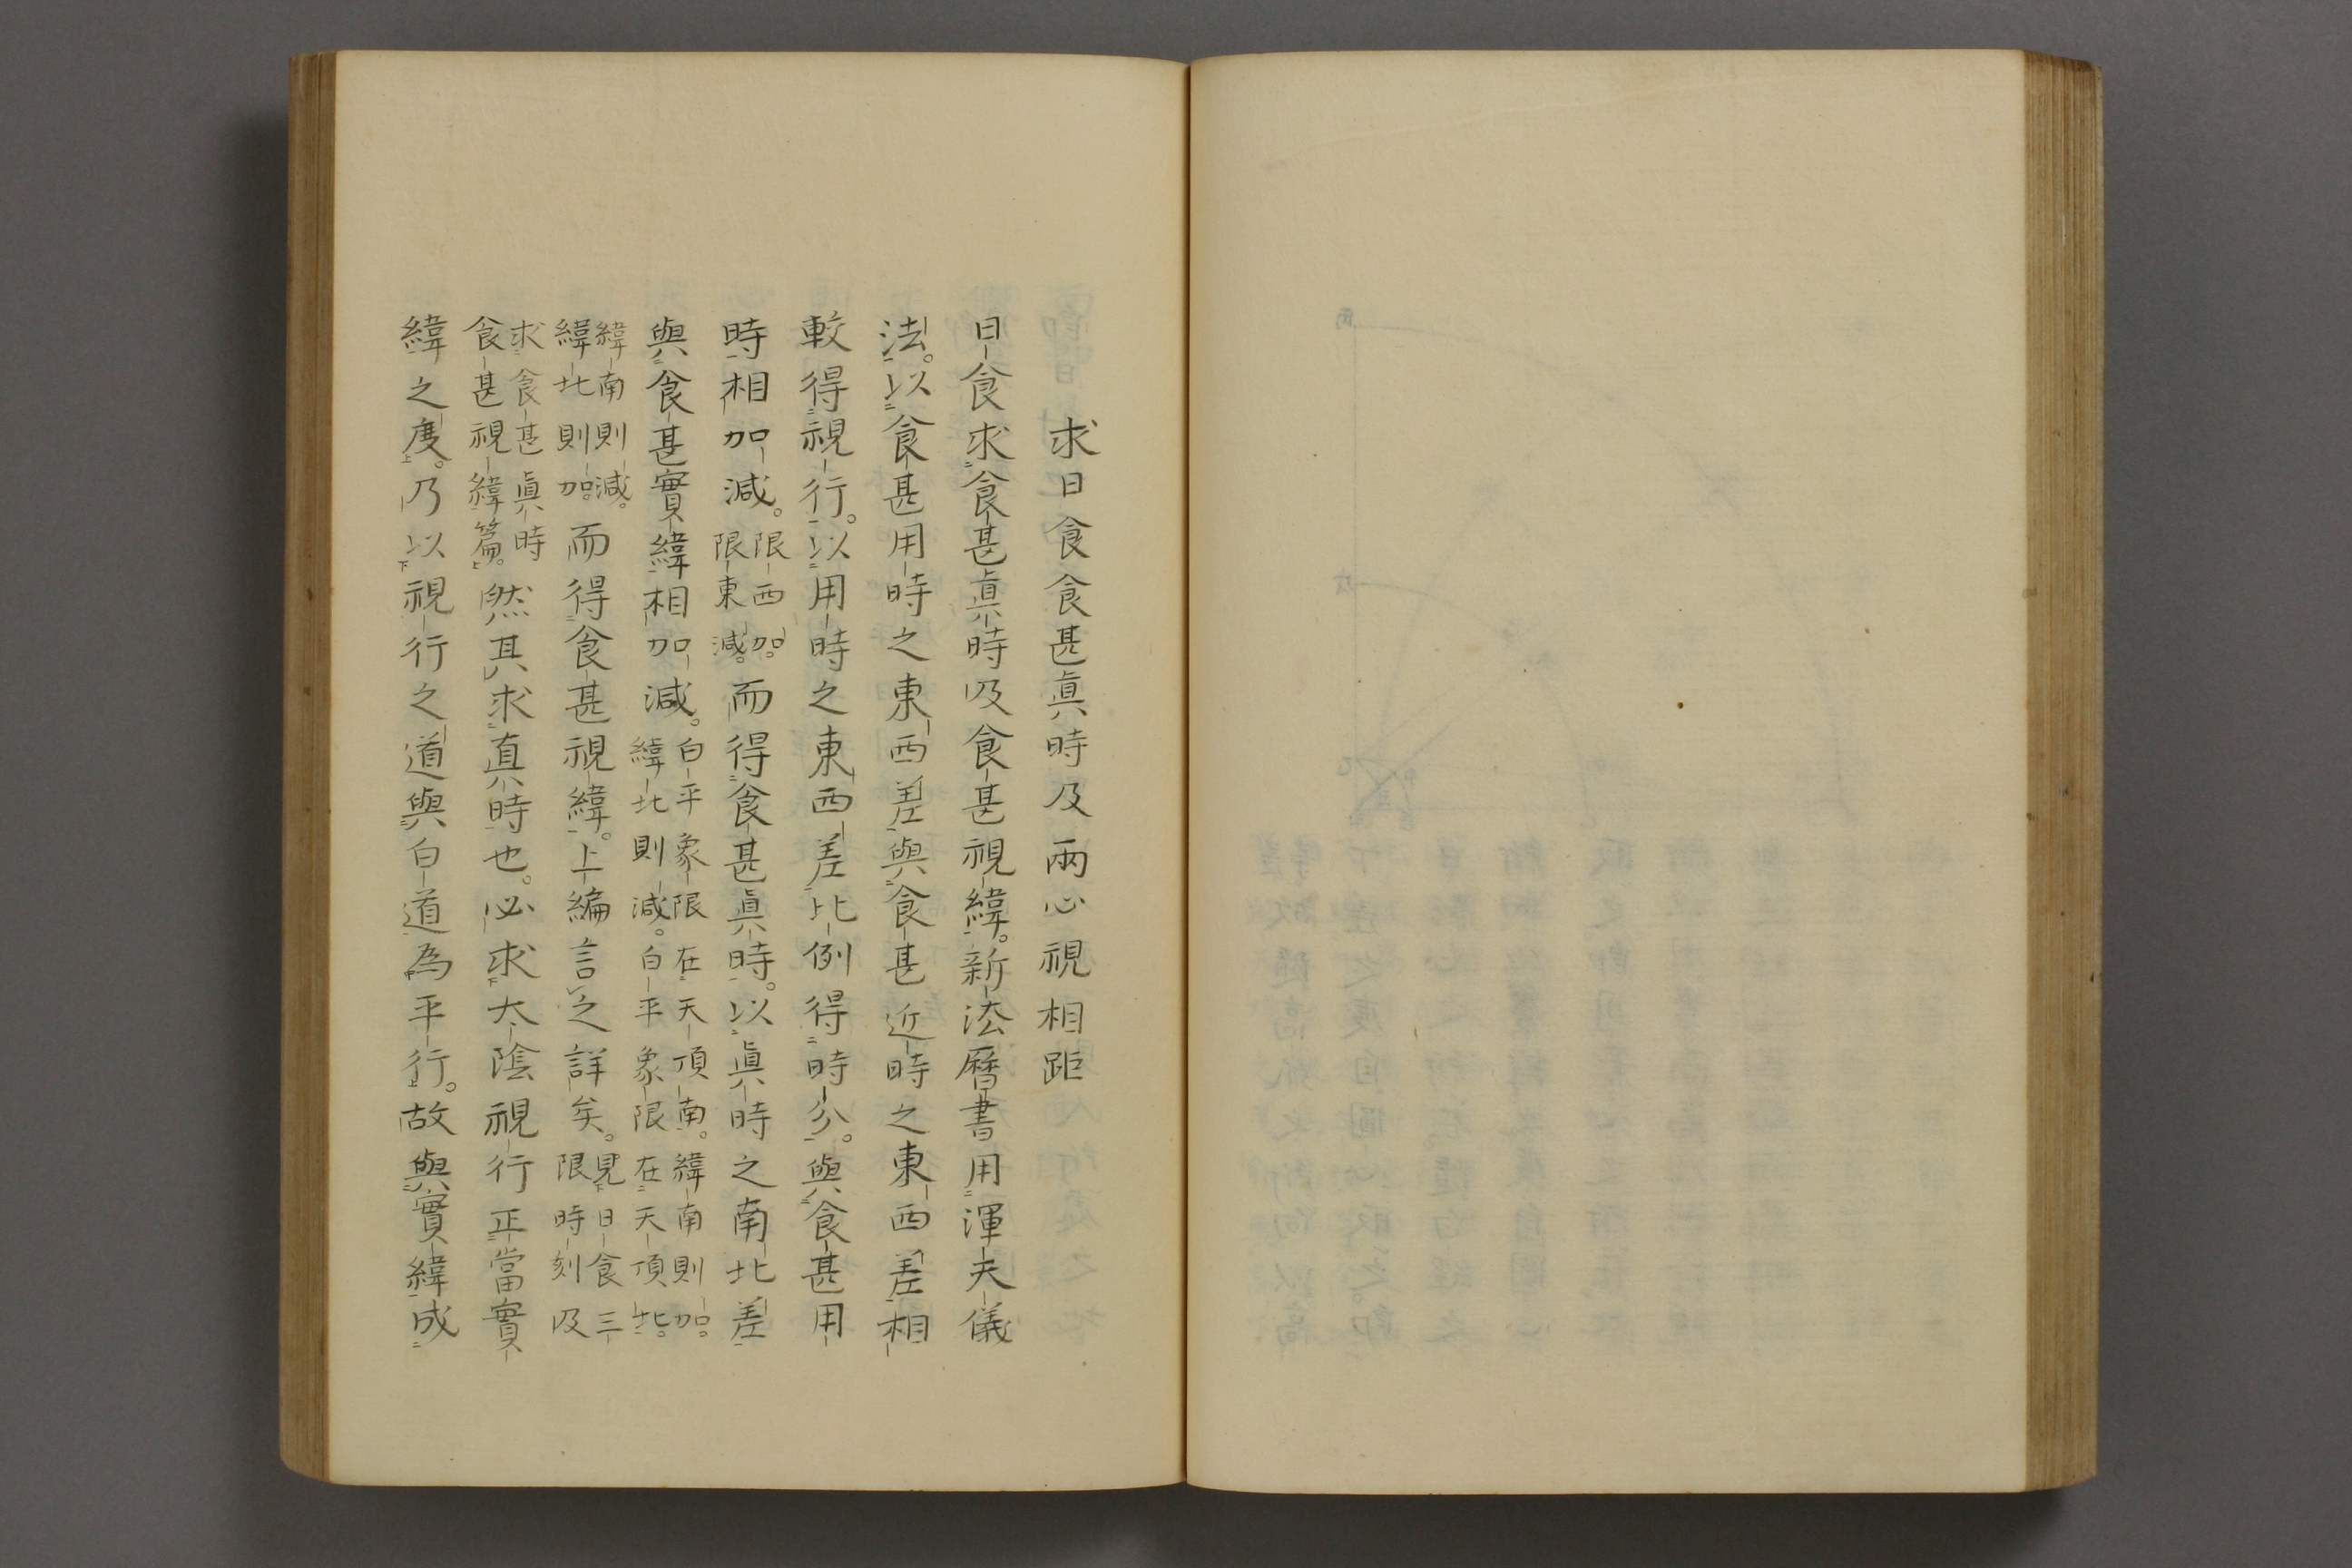 求日食食甚眞時及兩心視相距
日食求食甚眞時及食甚視緯。新法曆書用渾天儀
法。以食甚用時之東西差與食甚近時之東西差相
較得視行。以用時之東西差比例得時分。與食甚用
時相加減。限西加。限東減。而得食甚眞時。以眞時之南北差
與食甚實緯相加減。白平象限在天頂南。緯南則加。緯北則減。白平象限在天頂北。
緯南則減。緯北則加。而得食甚視緯。上編言之詳矣。見日食三限時刻及
求食甚眞時食甚視緯篇。然其求眞時也。必求太陰視行正當實
緯之度。乃以視行之道與白道為平行。故與實緯成